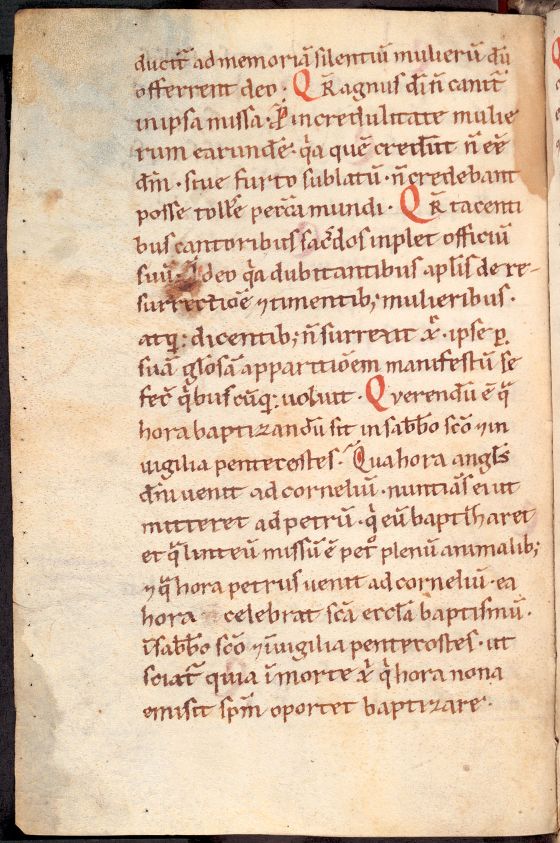 ducit᷑ ad memoriā silentiū mulierū dū
offerrent deo · Qr̄ agnus dī n̄ canit᷑
in ipsa missa · p̱ incredulitate mulie
rum earundē · qͣa quē credūt n̄ eē
dm̄ · siue furto sublatū · n̄ credebant
posse toll'e peccͣa mundi · Qr̄ tacenti
bus cantoribus sac̄dos inplet officiū
suū · deo qͣa dubitantibus ap̄lis de re-
surrectiōe ⁊ timentib; mulieribus ·
atq; dicentib; n̄ surrexit xp̄r · ipse p̱
suā gl̄osā apparitiōem manifestū se
fec̄ qͥbuscūq; uoluit · Querendū ē qͣ
hora baptizandū sit in sabb̄o sc̄o ⁊ in
uigilia pentecostes · Qua hora angl̄s
dn̄i uenit ad corneliū · nuntiās ei ut
mitteret ad petrū · qͥ eū baptiharet
et qͣ linteū missū ē petͦ plenū animalib;
⁊ qͣ hora petrus uenit ad corneliū · ea
hora celebrat sc̄a eccl̄a baptismū ·
ī sabb̄o sc̄o ⁊ ī uigilia pentecostes · ut
sciat᷑ quia ī morte xp̄i qͣ hora nona
emisit sp̄m oportet baptizare ·